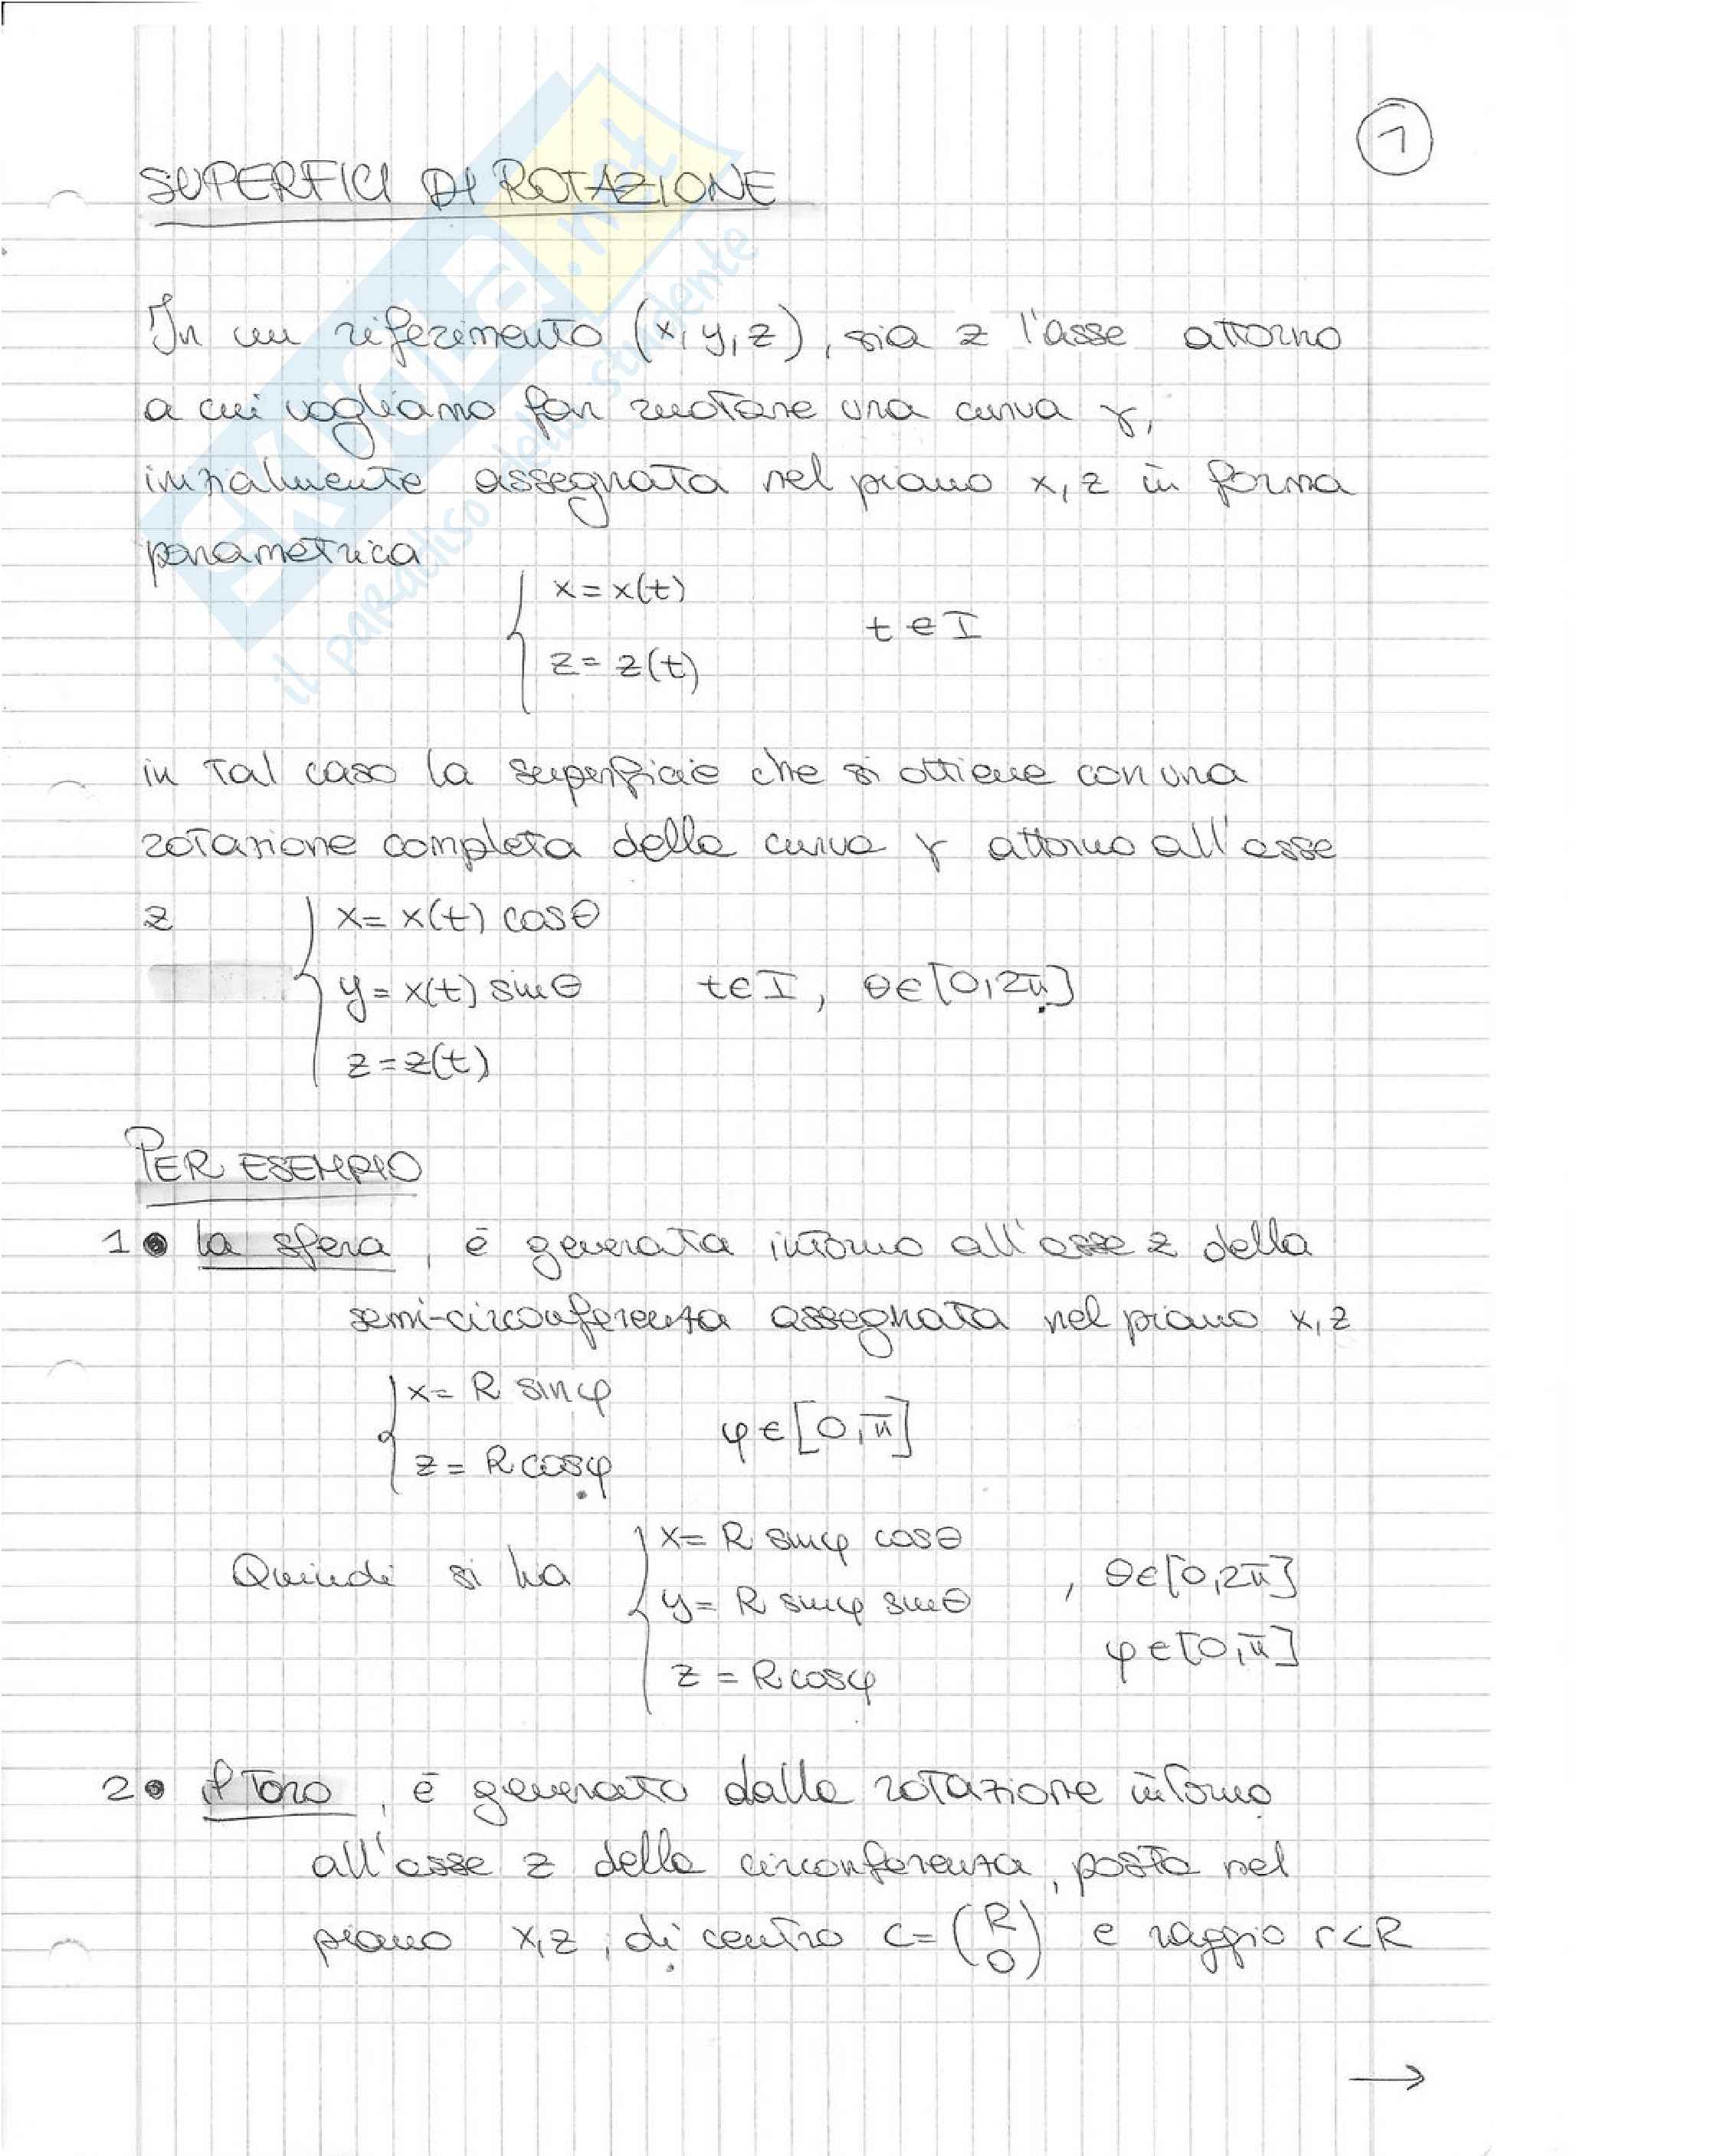 1
SUPERFICI DI ROTAZIONE
In un riferimento (x,y,z), sia z l'asse attorno
a cui vogliamo far ruotare una curva γ,
inizialmente assegnata nel piano x,z in forma
parametrica
x = x(t)
t ∈ I
z = z(t)
in tal caso la superficie che si ottiene con una
rotazione completa della curva γ attorno all'asse
z { x = x(t) cosθ
y = x(t) sinθ t ∈ I, θ ∈ [0,2π]
z = z(t)
PER ESEMPIO
1• la sfera, è generata intorno all'asse z della
semi-circonferenza assegnata nel piano x,z
x = R sinφ
φ ∈ [0,π]
z = R cosφ
x = R sinφ cosθ
Quindi si ha { y = R sinφ sinθ , θ ∈ [0,2π]
φ ∈ [0,π]
z = R cosφ
2• il toro, è generato dalla rotazione intorno
all'asse z della circonferenza, posta nel
piano x,z, di centro C = (R 0) e raggio r<R
→
SKUOLA.net
il paradiso dello studente